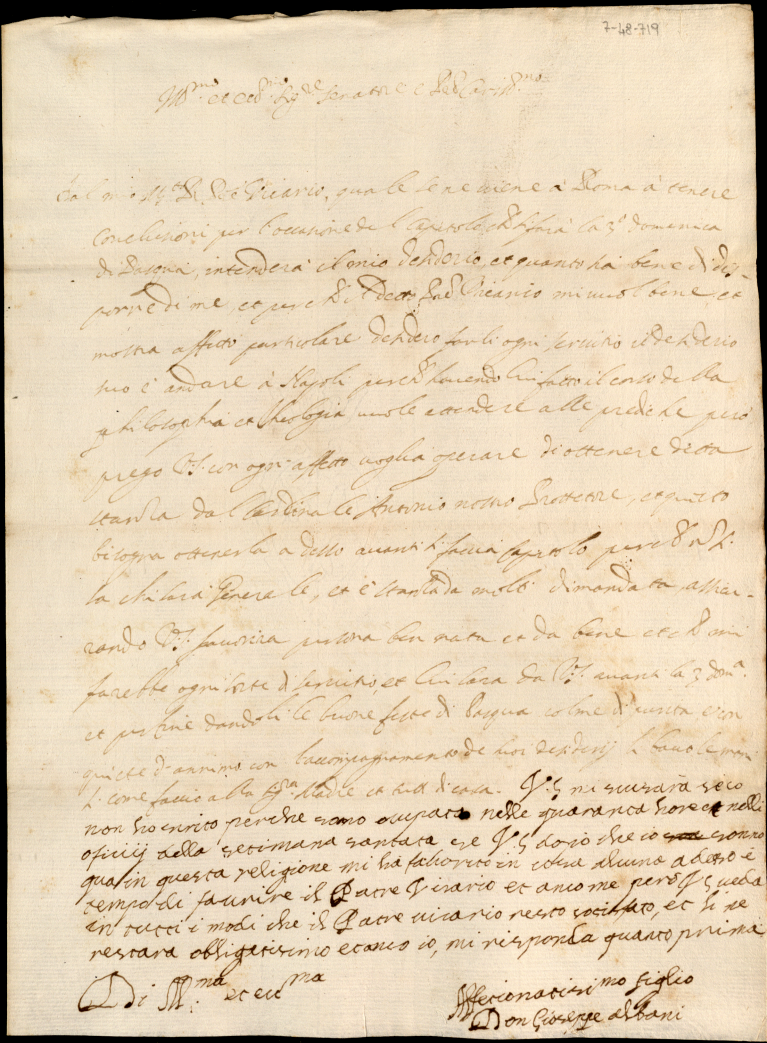 7-48-719
Ill.mo et ecc.mo Sig.re Senatore e Pad.
Dal mio Pad.e Vicario, quale se ne viene à Roma à tenere
conclusioni per l'occasione del Capitolo che si farà la 3.a domenica
di Pasqua, intenderà il mio desiderio et quanto ha bene di dis-
porre di me, et perche il detto Pad. Vicario mi vuol bene et
mostra affetto particolare desidero farli ogni servitio il desiderio
suo è andare à Napoli perche havendo lui fatto il corso della
philosophia et theologia vuole attendere alle prediche però
prego V.S. con ogni affetto voglia operare di ottenere detta
stanza dal Cardinale Antonio nostro Prottettore, et questo
bisogna ottenerla adesso avanti si faccia Capitolo perche
la chi sarà Generale, et è stanza da molti dimandata, assicu-
rando V.S. favorirà persona ben nata et da bene et che mi
farebbe ogni sorte di servitio, et lui sarà da V.S. avanti la 3 dom.a
et per fine dandoli le buone feste di Pasqua colme di
quiete d'annimo con l'accompagnamento de suoi desiderij li bacio le mani
si come faccio alla Sig.ra Madre et tutti di casa. V.S. mi scusarà seco
non ho scritto perche sono ocupato nelle quaranta hore et nelli
oficij della setimana santa se V.S. doppo che io sonno
qua in questa religione mi ha favorito in cosa alcuna adesso è
tempo di favrire il Patre Vicario et anco me però V.S. veda
in tucci i modi che il Patre vicario resto et li ne
restara obligatissimo et anco io, mi risponda quanto prima
Di V.S. Ill.ma et ecc.ma
Affecionatissimo figlio
Don Gioseppe Albani